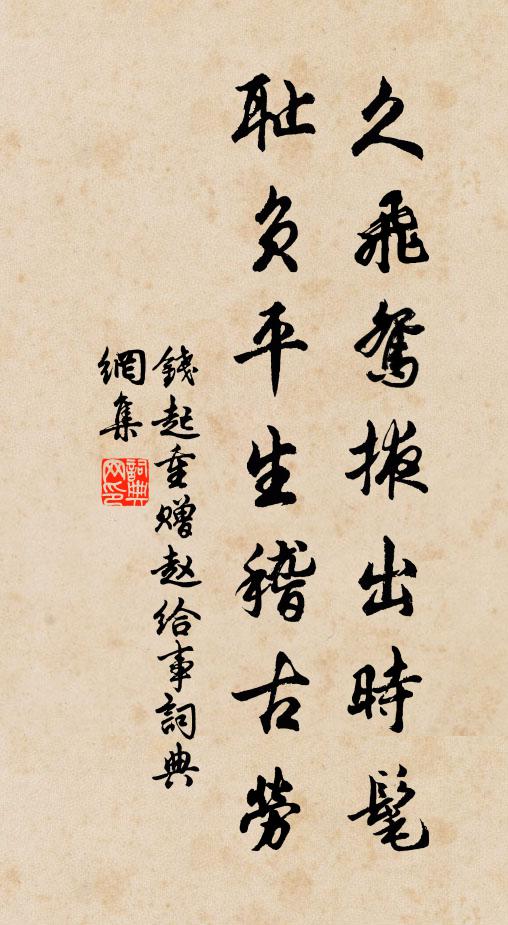 久飛鴛掖出時髦
耻負平生稽古勞
錢起重贈趙給事詞典
網集
詞典
网印